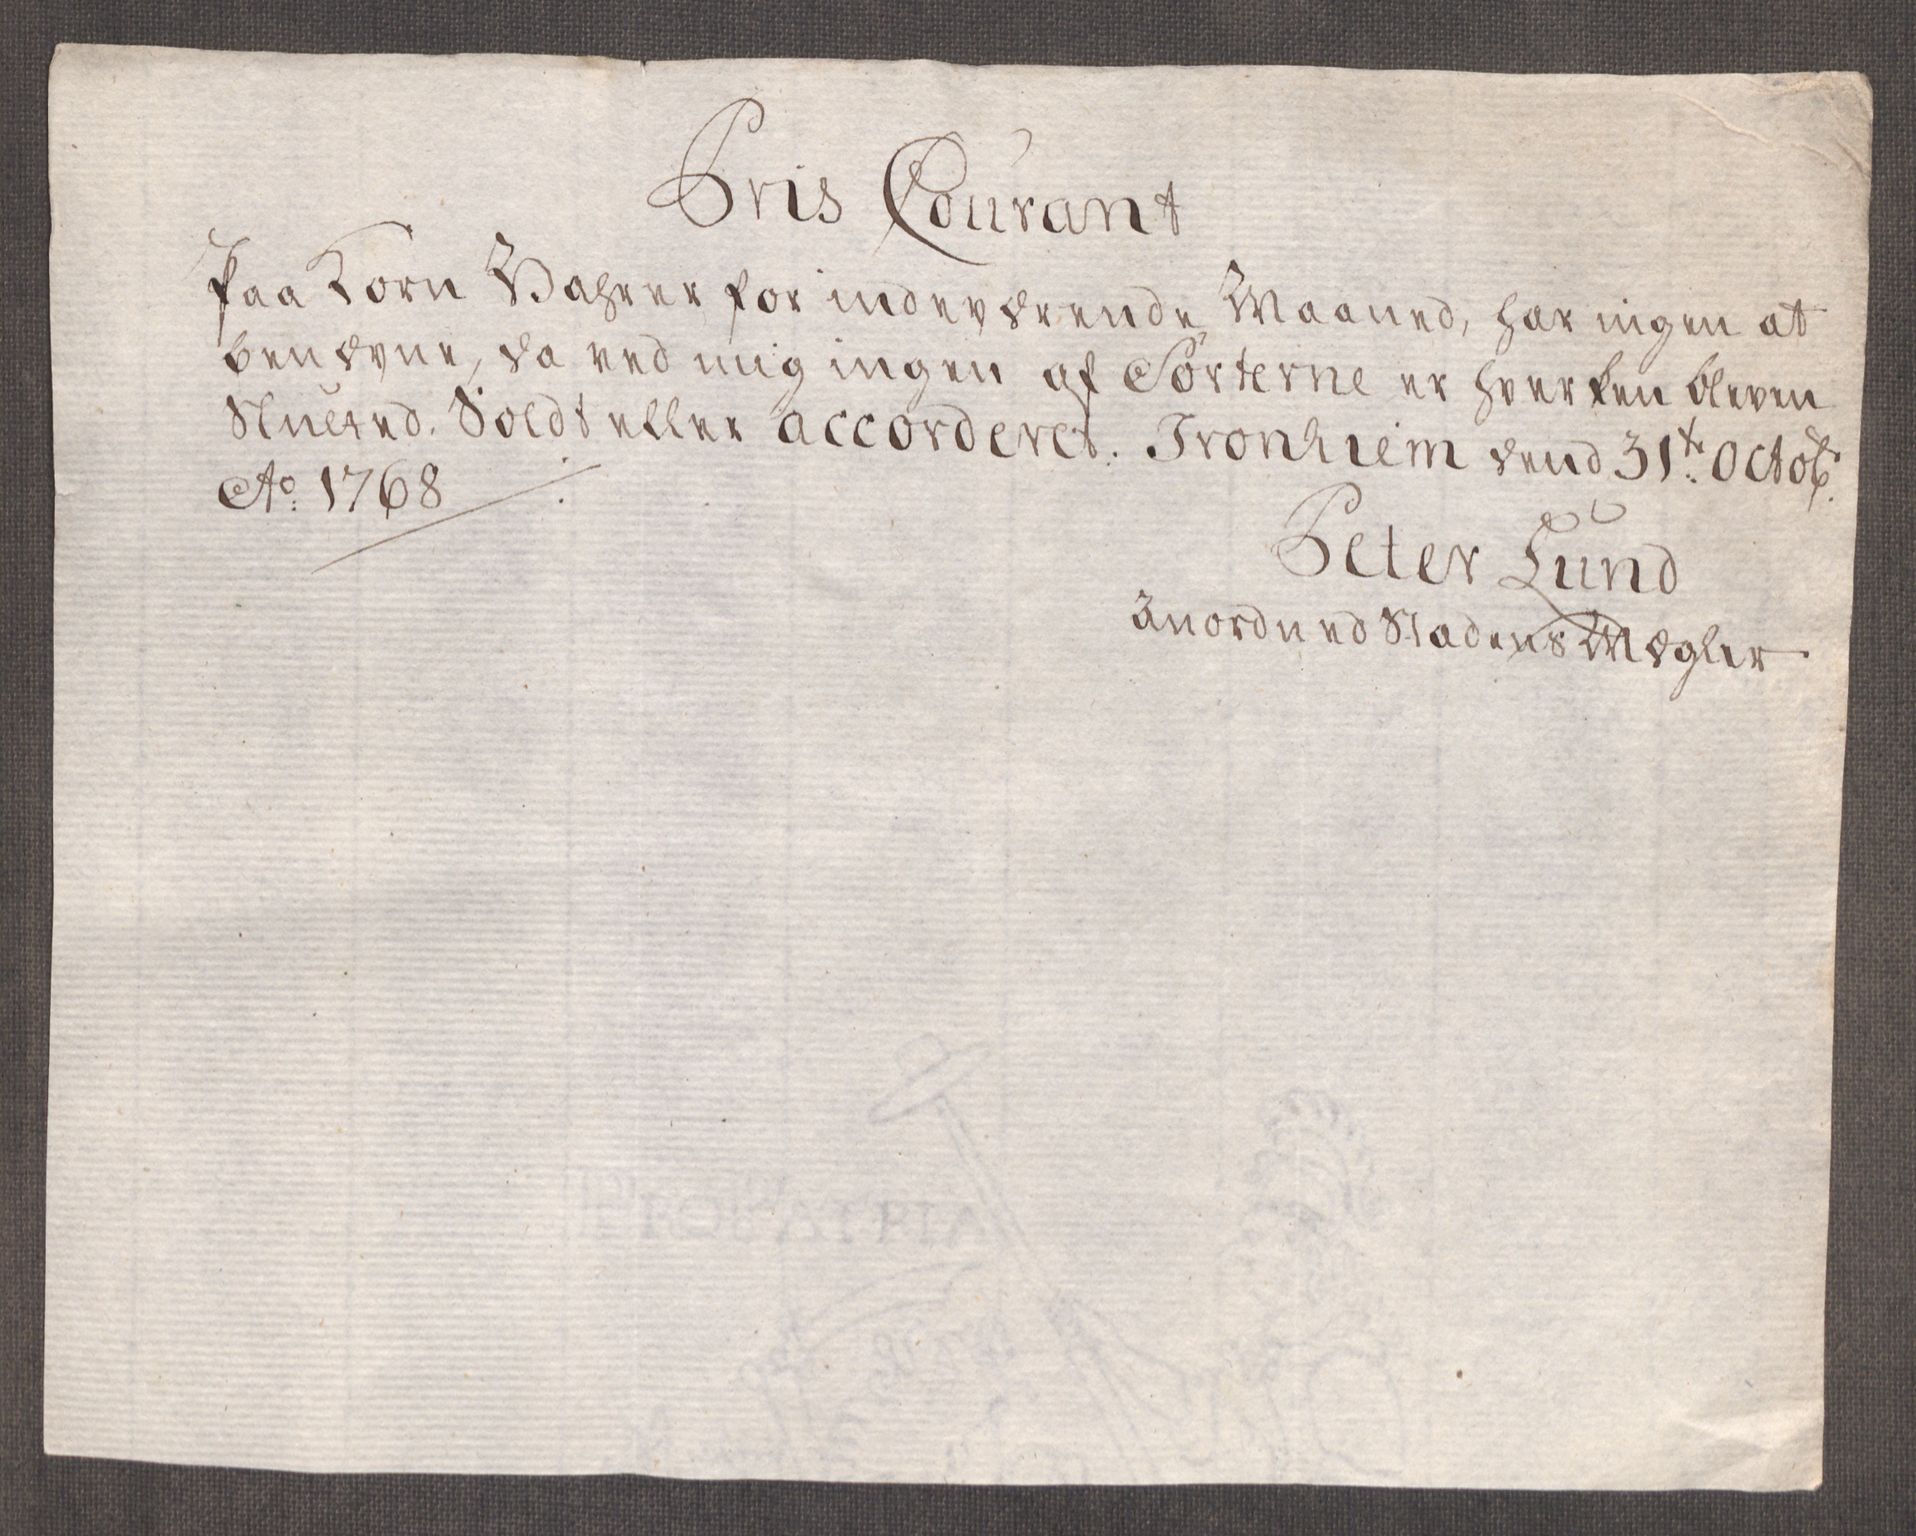 Pris Courant
Paa Korn Vahrer for indeværende Maaned, har ingen at
benævne, da ved mig ingen af Sorterne er hverken bleven
Slutted. Soldt eller accorderet. Tronhiem dend 31te Octobr.
Ao. 1768
Peter Lund
Anordned Stadens Mægler
PRO PATRIA